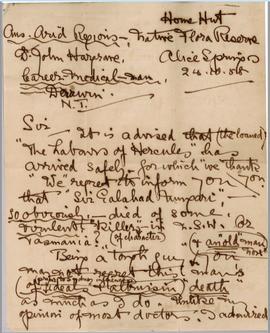 Home Hut
Arid Regions - Native Flora Reserve
Dr. John Hargrave, Alice Springs
Career Medical-man, 24.10.58
Darwin
N.T.
Sir
It is advised that (the loaned)
"The Labours of Hercules" has
arrived safely for which "we" thank
you
"We" regret to inform you
that "Sir Galahad
so died of some
virulent Killers in N.S.W. or
Tasmania. (of character) of an old man
Being a tough guy you
may not regret this man's
(of ideal altruism) death
as much as I do. Unlike the
opinion of most doctors, I admired